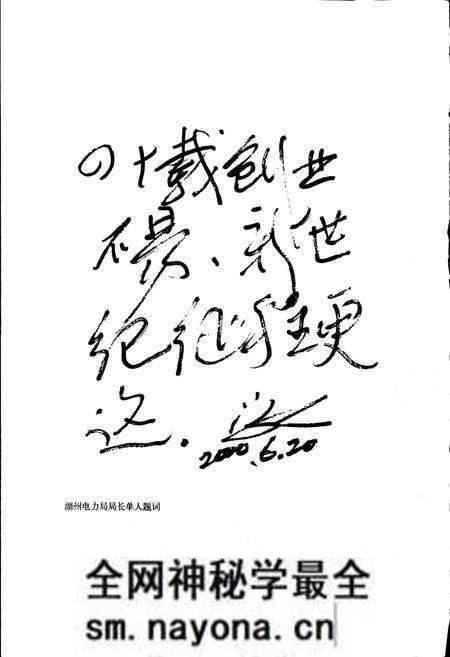 四十载创业
不易、新世
纪征程更
远.
2000.6.20
湖州电力局局长单人题词
全网神秘学最全
sm.nayona.cn